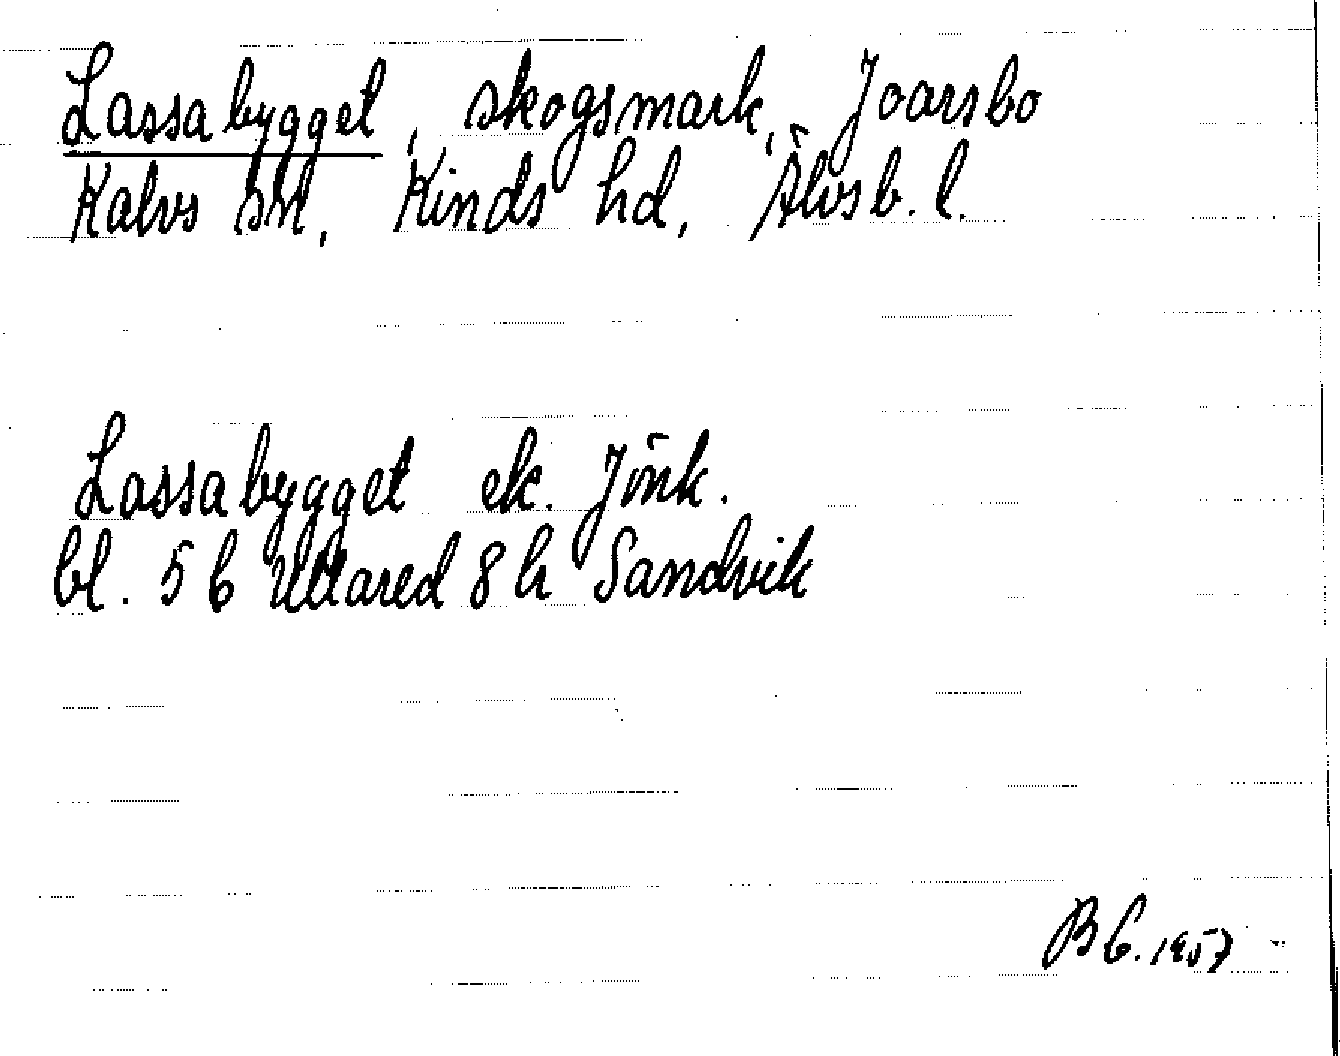 Lassabygget, skogsmark, Joarsbo
Kalvs sn, Kinds hd, Älvsb. l.
Lassabygget ek. Jönk.
bl. 5 6 Ullared 8 h Sandvik
B 6. 1957